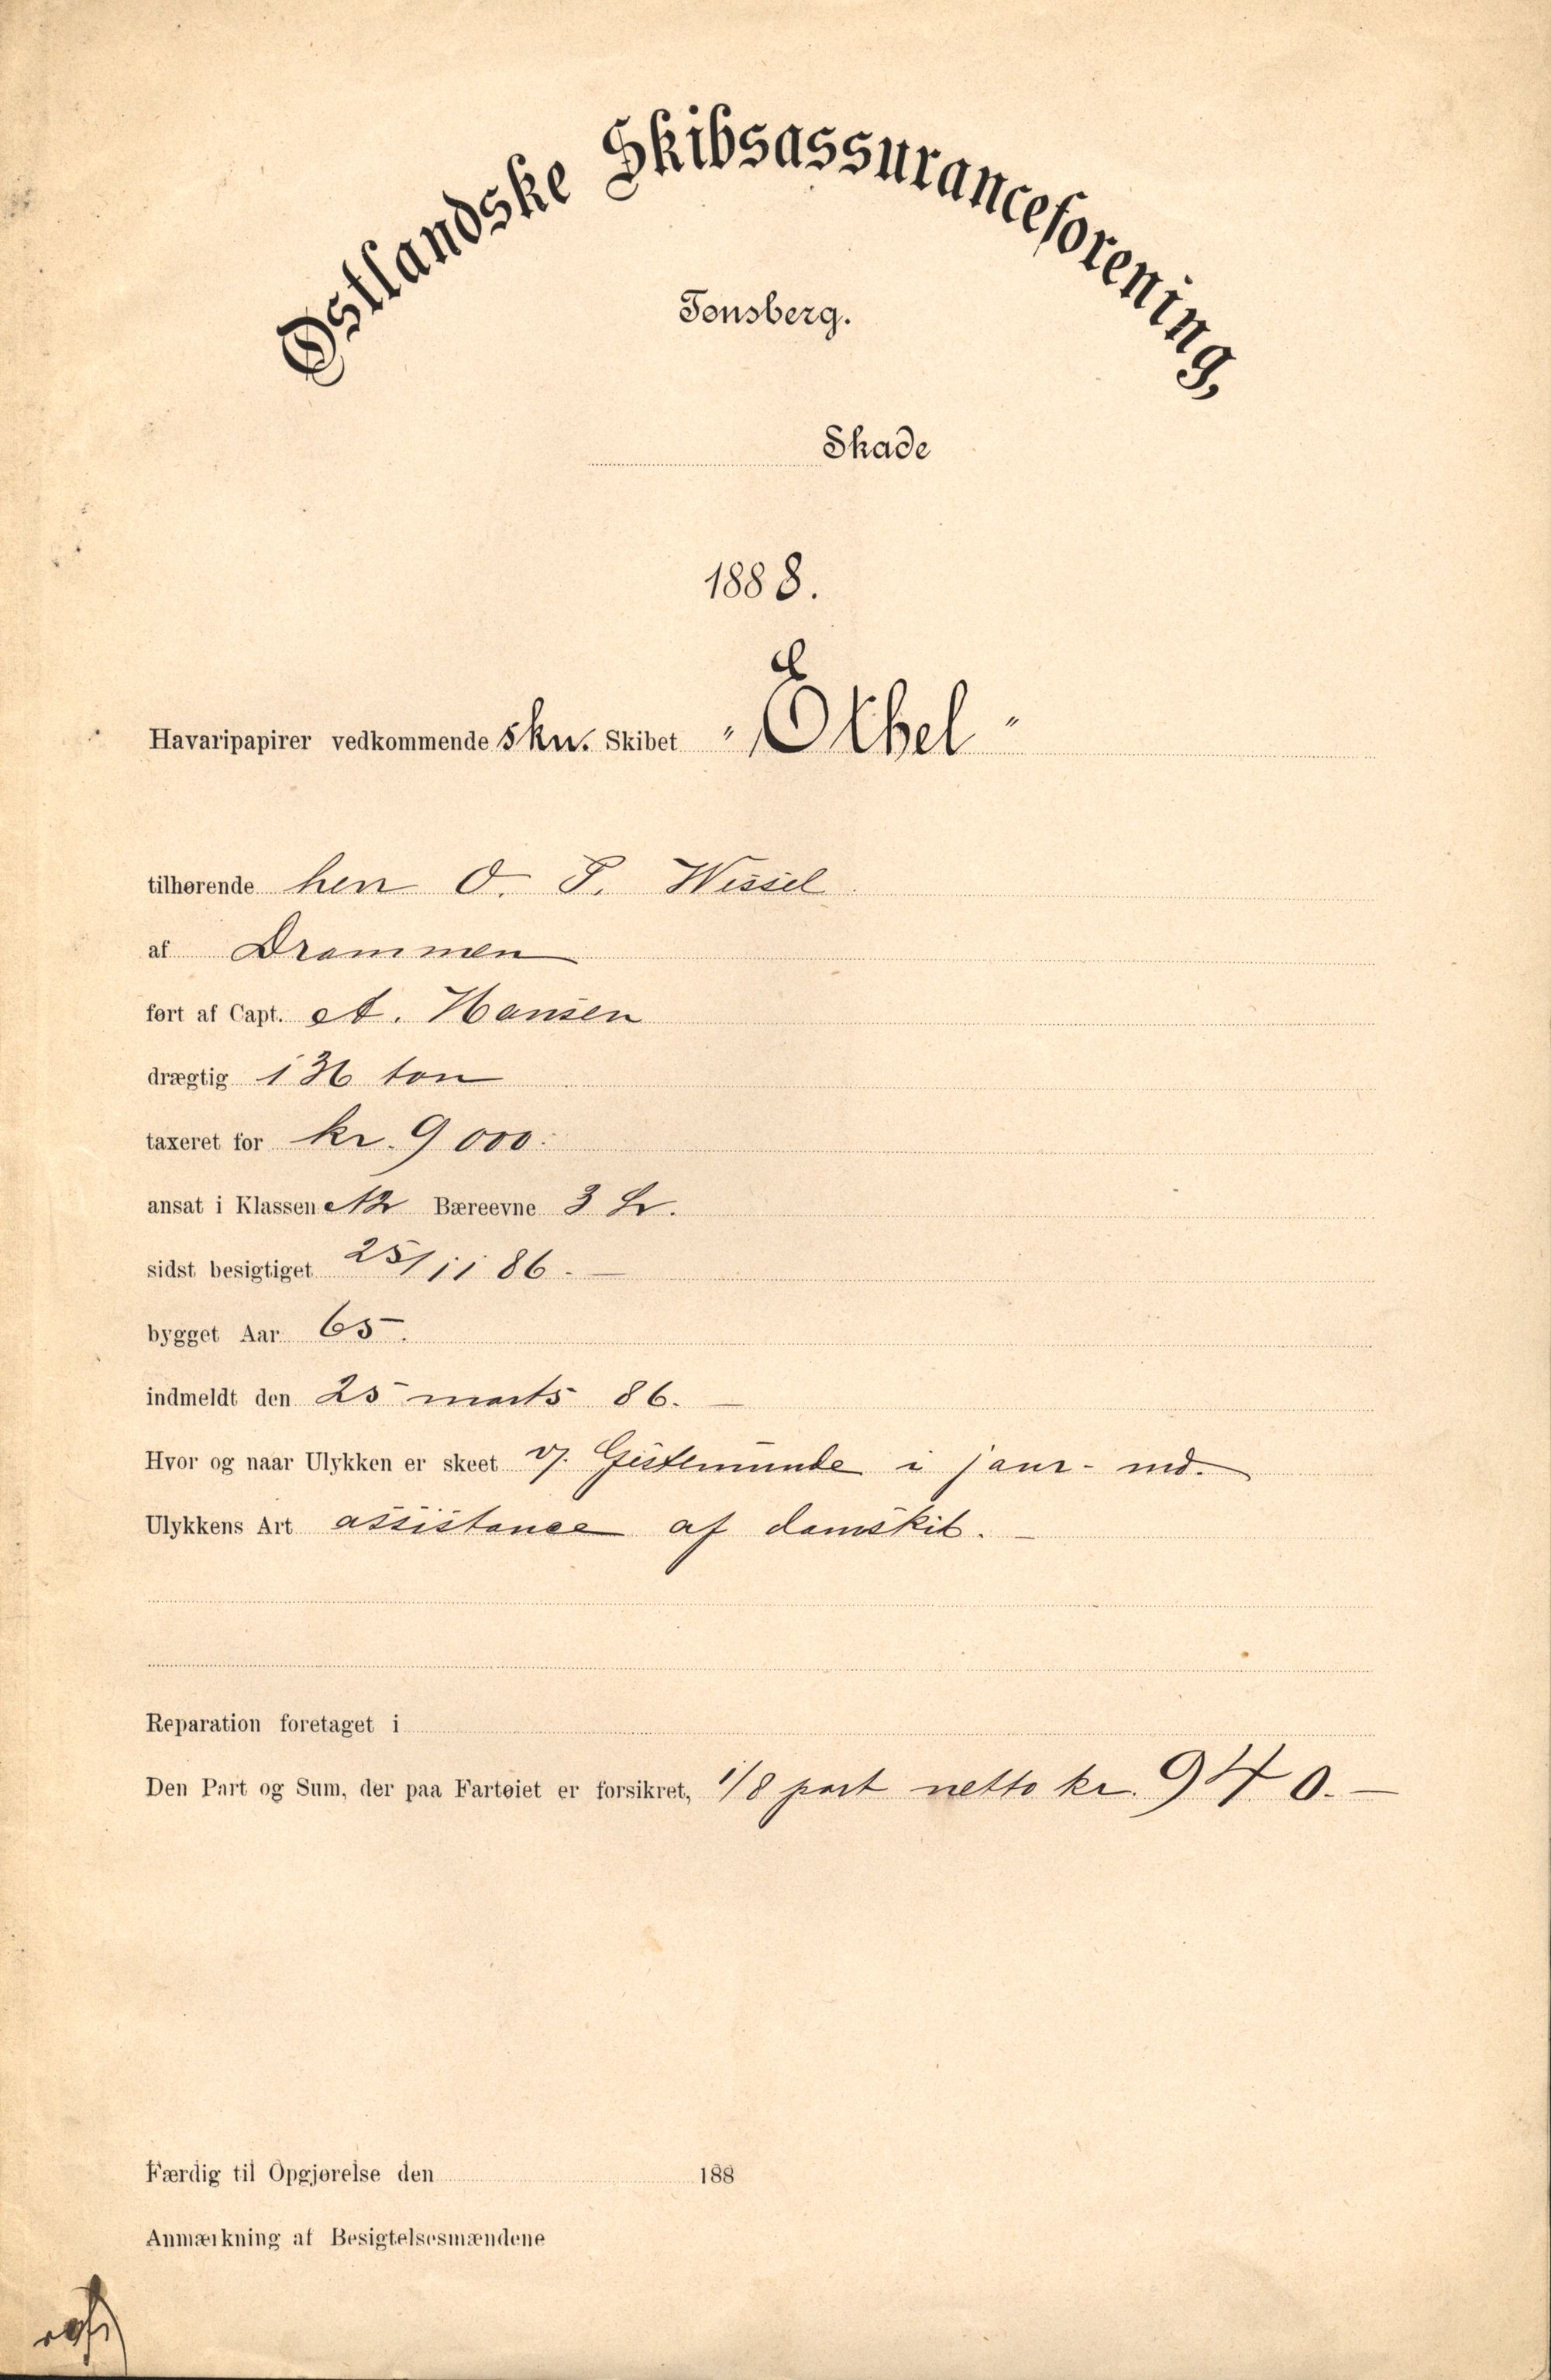 Østlandske Skibsassuranceforening,
Tønsberg.
Skade
1888.
Havaripapirer vedkommende skn. Skibet "Ethel"
tilhørende herr O. P. Wessel
af Drammen
ført af Capt. A. Hansen
drægtig 136 ton
taxeret for kr. 9000.
ansat i Klassen A2 Bæreevne 3
sidst besigtiget 25/11 86. —
bygget Aar 65.
indmeldt den 25 marts 86. —
Hvor og naar Ulykken er skeet v/. Gestemünde i janr. md.
Ulykkens Art assistance af damskib. —
Reparation foretaget i
Den Part og Sum, der paa Fartøiet er forsikret, 1/8 part netto kr. 940. —
Færdig til Opgjørelse den 188
Anmærkning af Besigtelsesmændene